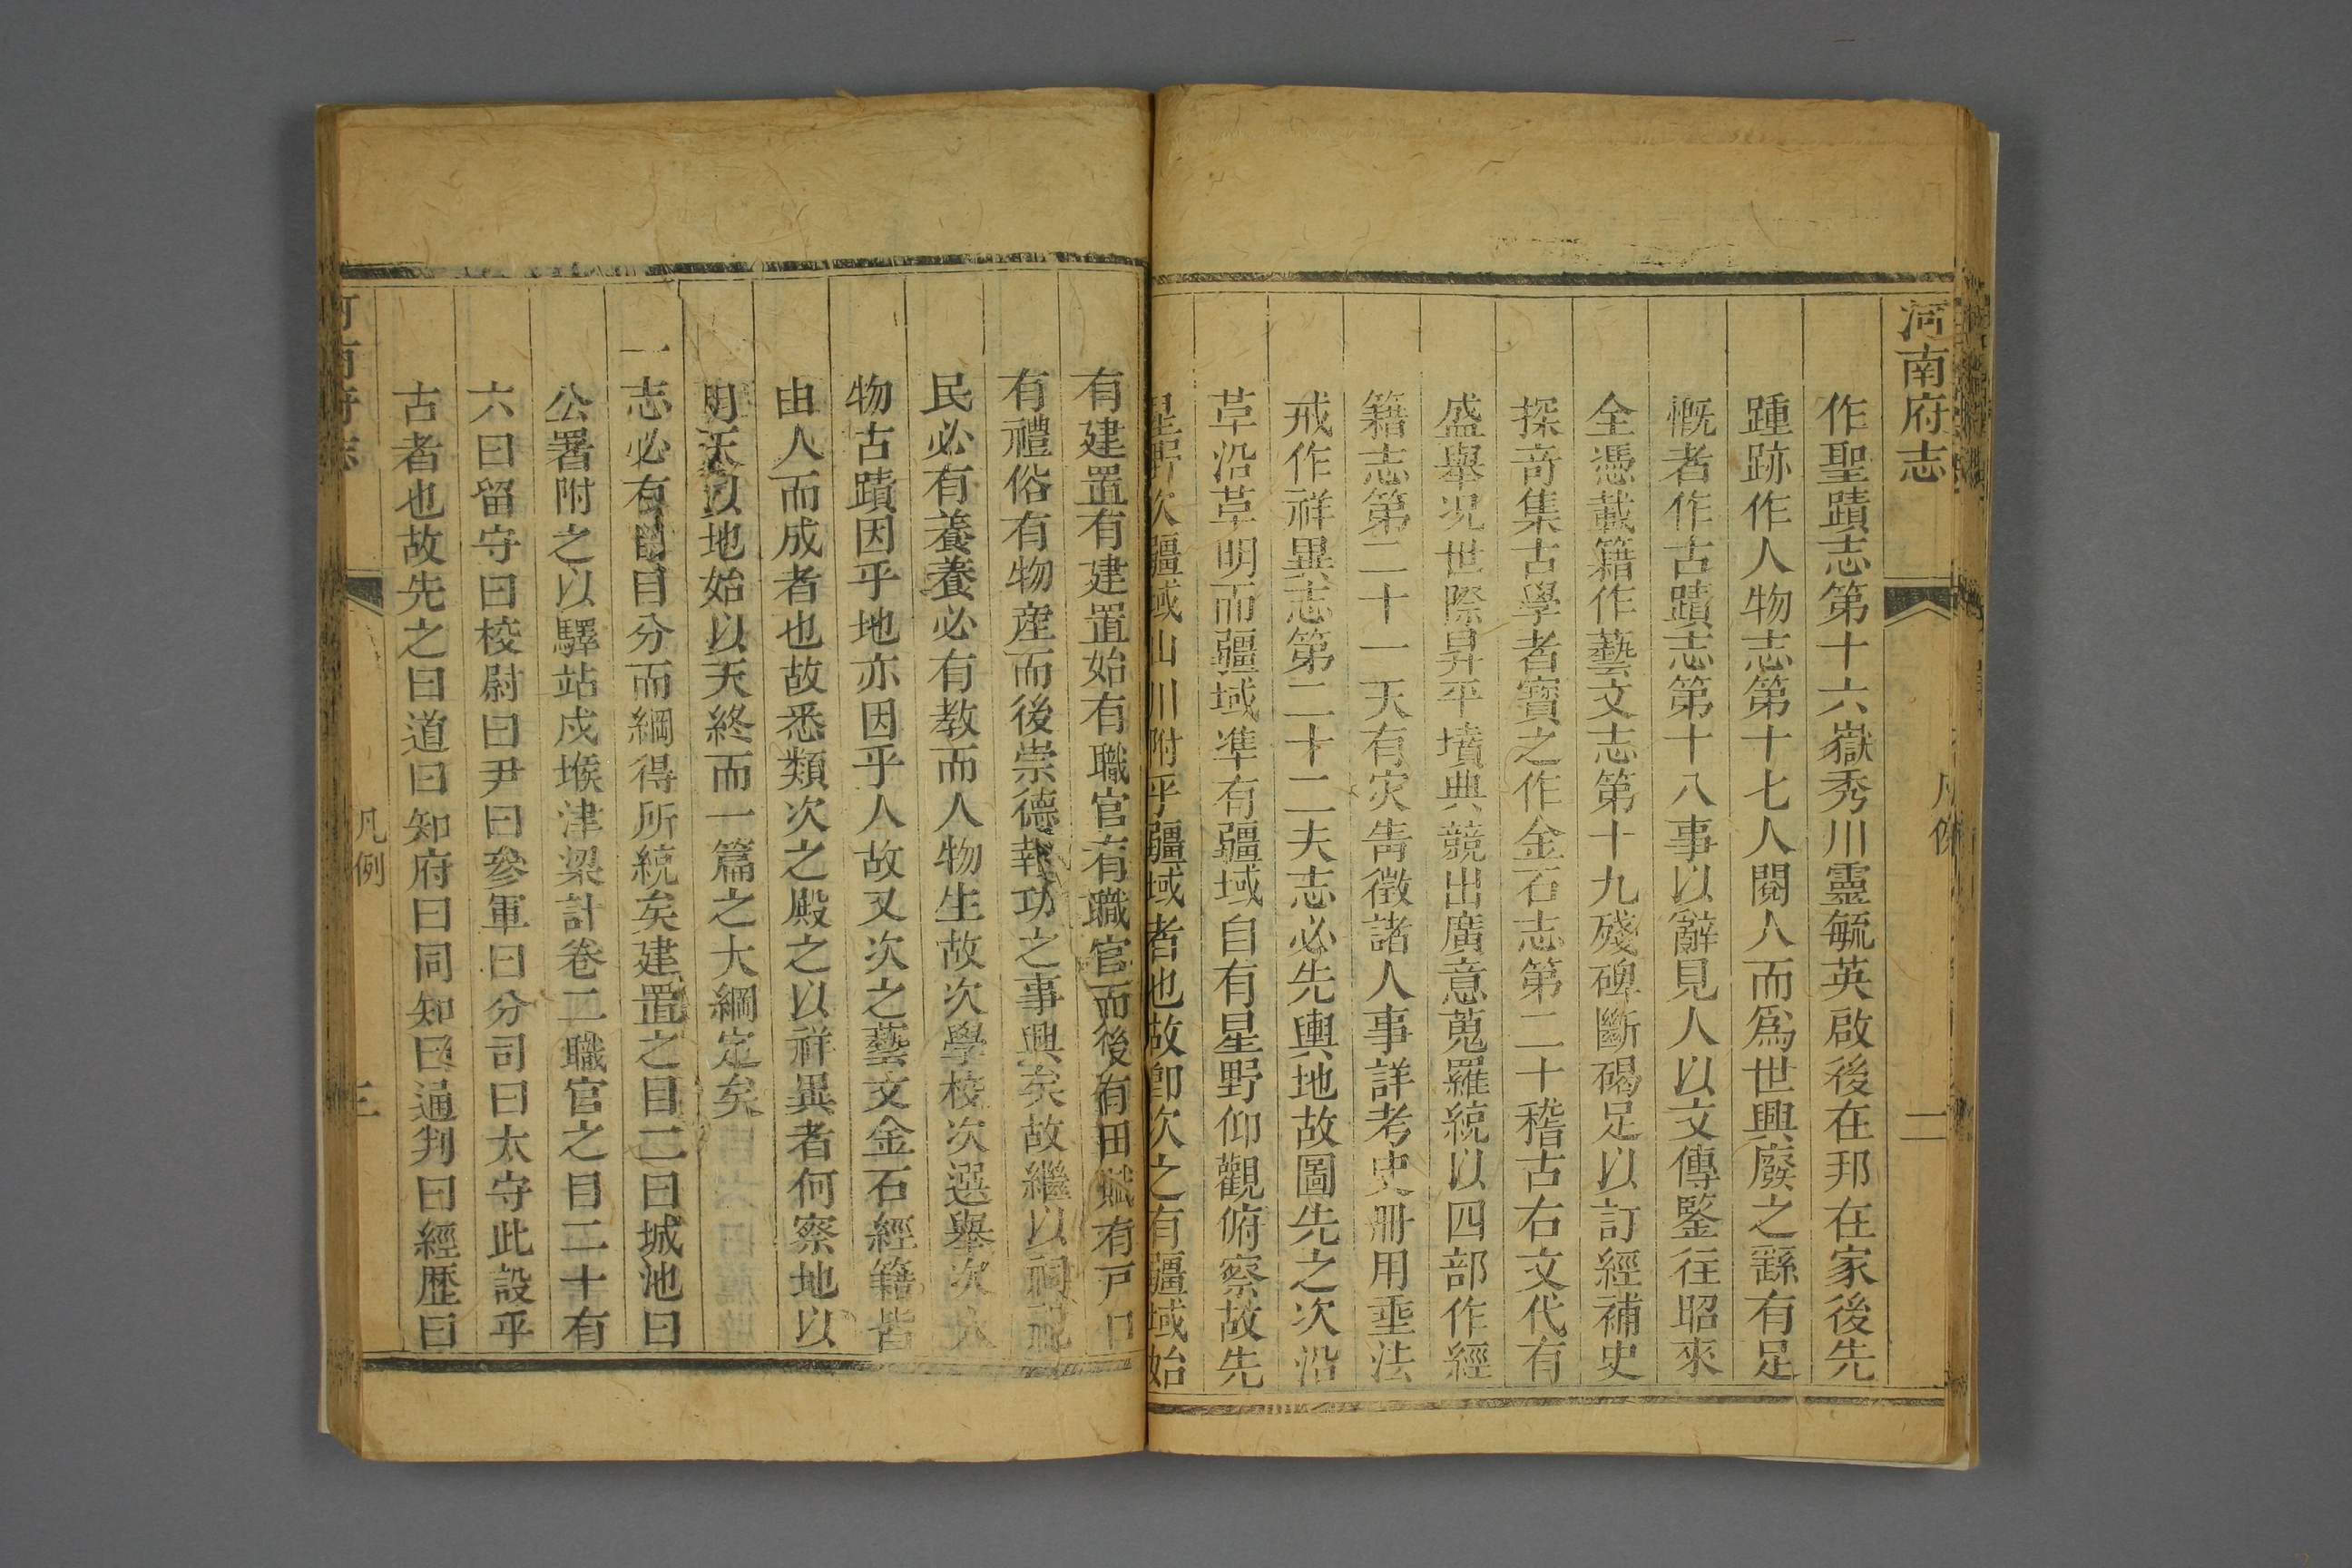 河南府志
凡例
二
作聖蹟志第十六嶽秀川靈毓英啟後在邦在家後先
踵跡作人物志第十七人閱人而爲世興廢之繇有足
慨者作古蹟志第十八事以辭見人以文傳鑒往昭來
全憑載籍作藝文志第十九殘碑斷碣足以訂經補史
探奇集古學者寶之作金石志第二十稽古右文代有
盛舉况世際昇平墳典競出廣意蒐羅統以四部作經
籍志第二十一天有灾眚徵諸人事詳考史冊用垂法
戒作祥異志第二十二夫志必先輿地故圖先之次沿
革沿革明而疆域凖有疆域自有星野仰觀俯察故先
星野次疆域山川附乎疆域者也故卽次之有疆域始
有建置有建置始有職官有職官而後有田賦有戸口
有禮俗有物産而後崇德報功之事興矣故繼以祠祀
民必有養養必有教而人物生故次學校次選舉次人
物古蹟因乎地亦因乎人故又次之藝文金石經籍皆
由人而成者也故悉類次之殿之以祥異者何察地以
明天以地始以天終而一篇之大綱定矣
一志必有目分而綱得所統矣建置之目二曰城池曰
公署附之以驛站戍堠津梁計卷二職官之目二十有
六曰留守曰校尉曰尹曰參軍曰分司曰太守此設乎
古者也故先之曰道曰知府曰同知曰通判曰經歷曰
河南府志
凡例
三